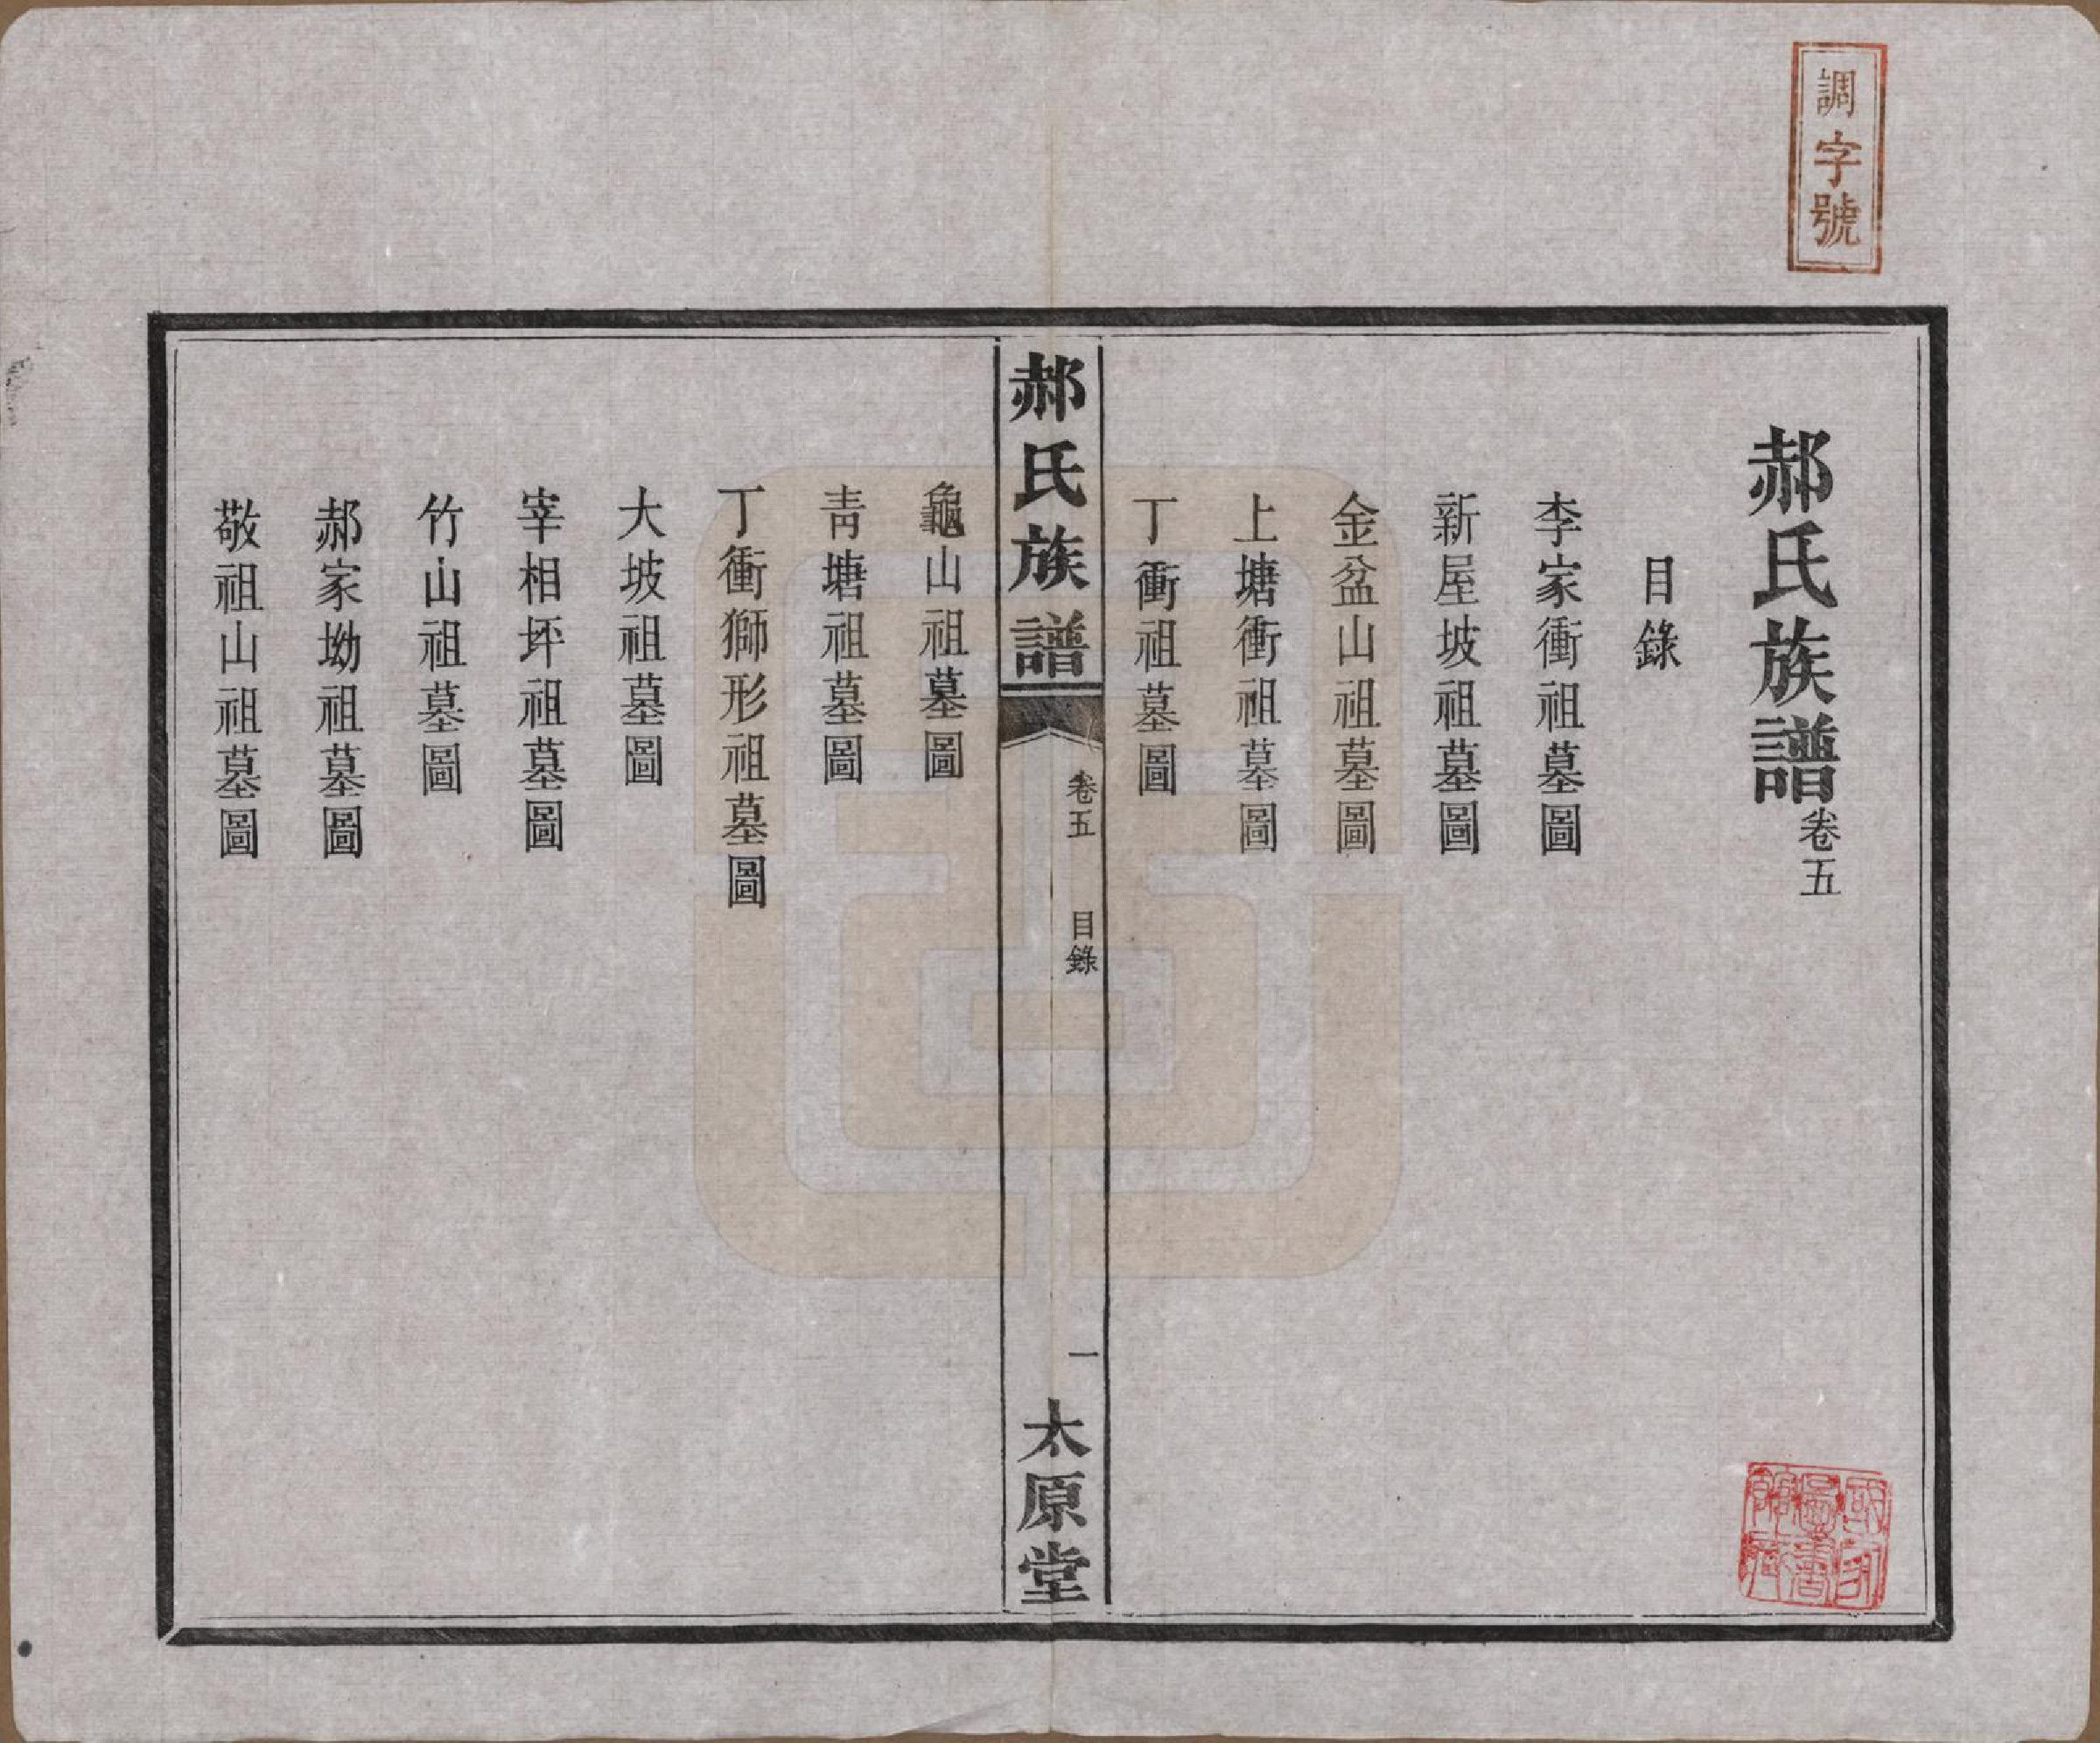 調字號
郝氏族譜卷五
目錄
李家衝祖墓圖
新屋坡祖墓圖
金盆山祖墓圖
上塘衝祖墓圖
丁衝祖墓圖
郝氏族譜
卷五
目錄
一
太原堂
龜山祖墓圖
青塘祖墓圖
丁衝獅形祖墓圖
大坡祖墓圖
宰相坪祖墓圖
竹山祖墓圖
郝家坳祖墓圖
敬祖山祖墓圖